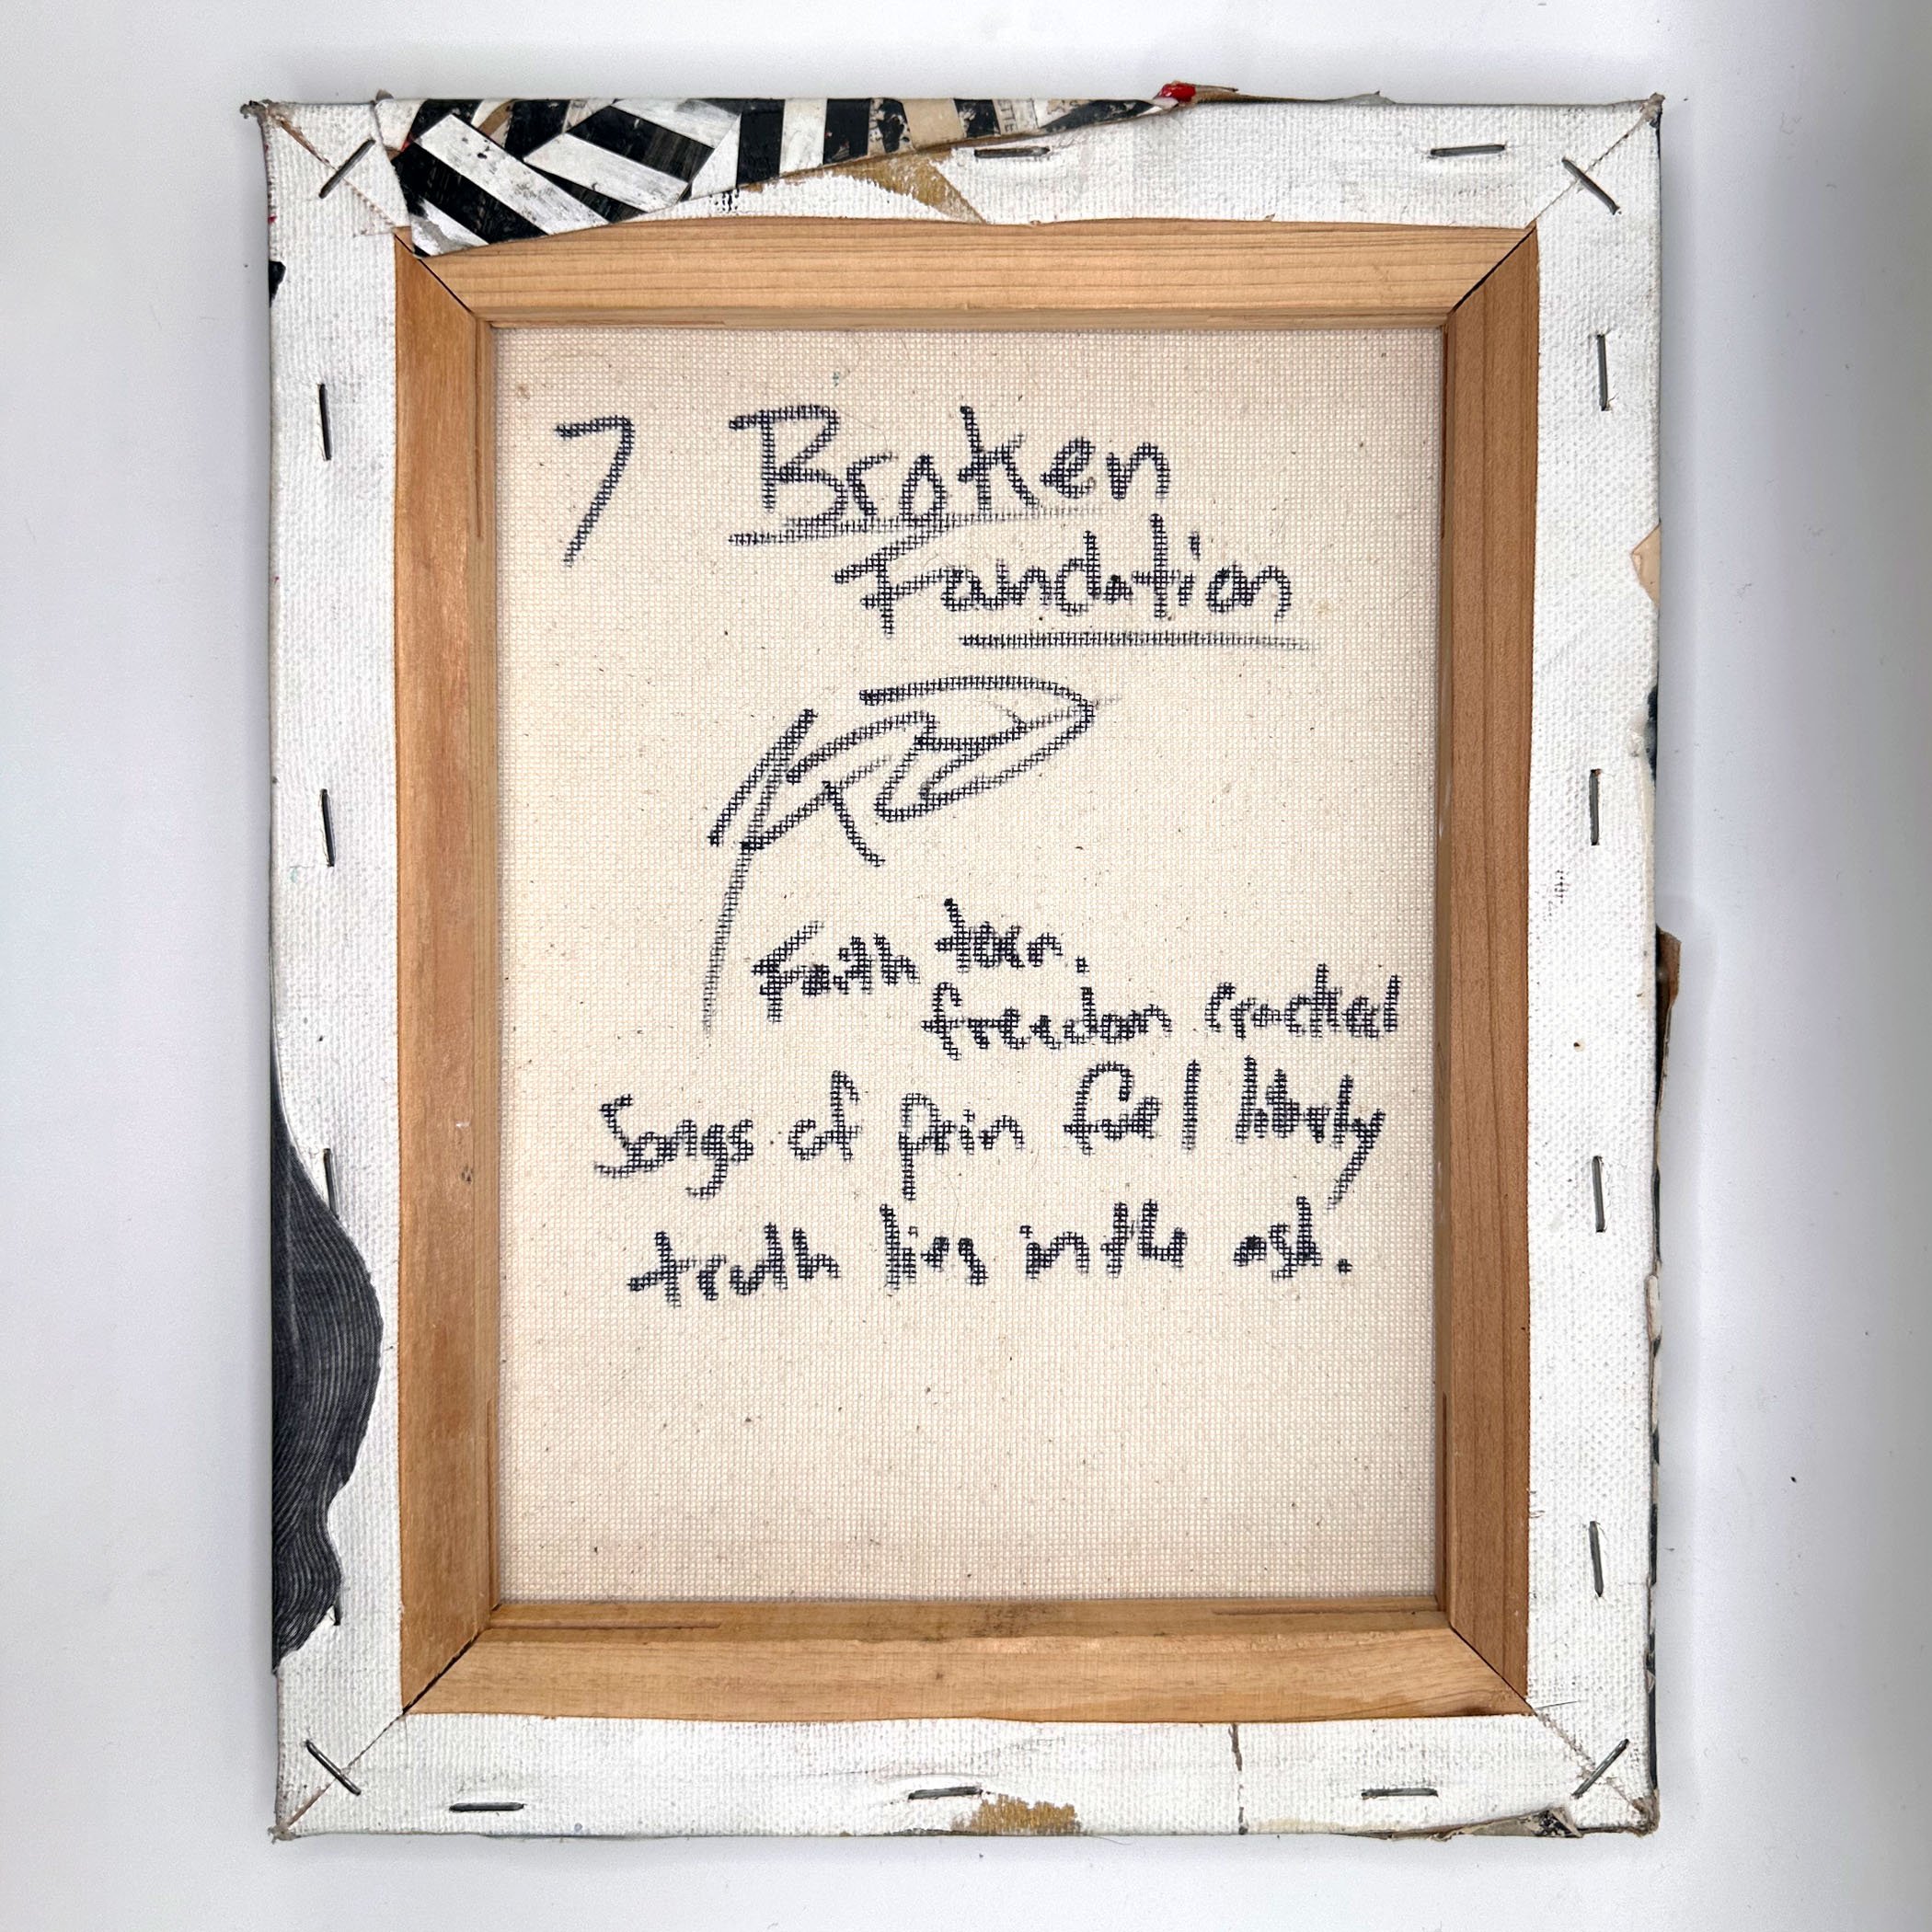 7 Broken
Foundation
Faith torn,
freedom cracked
Songs of pain fuel liberty
truth lies in the ash.